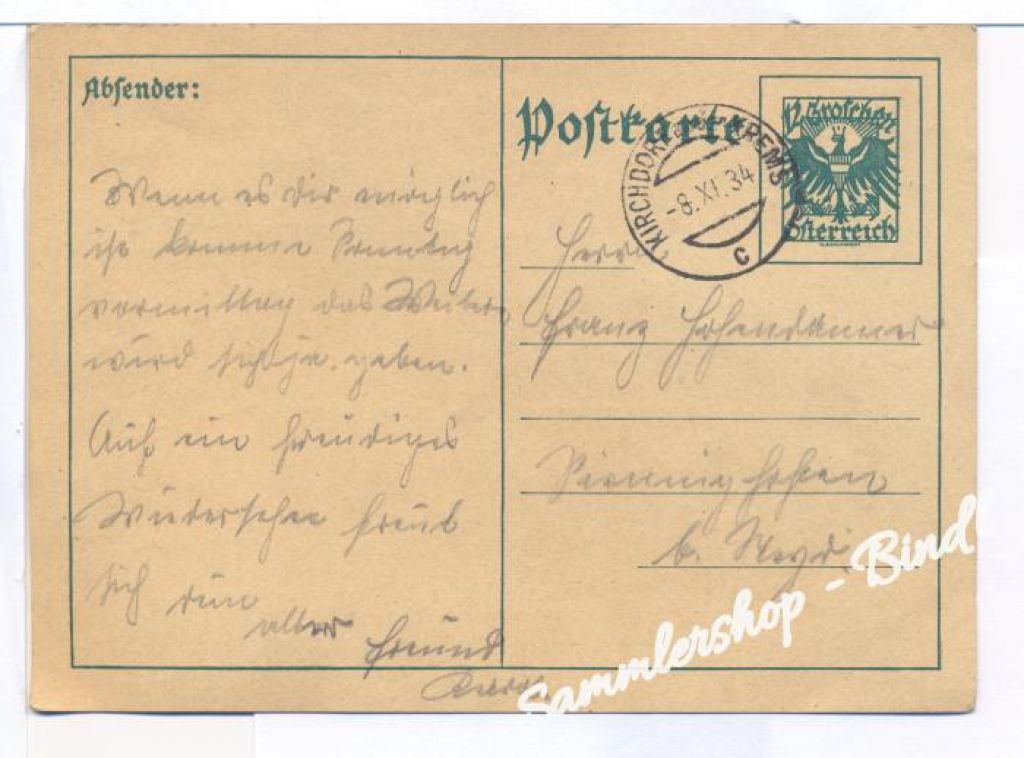 Absender:
Wenn es dir möglich
ist komme Sonntag
vormittag das Weitere
wird sich ja geben.
Auf ein freudiges
Wiedersehen freut
sich dein
alter Freund
Postkarte
12 Groschen
Österreich
KIRCHDORF KREMS
-8.XI.34
C
Herrn
Franz
b.
Sammlershop - Bindl